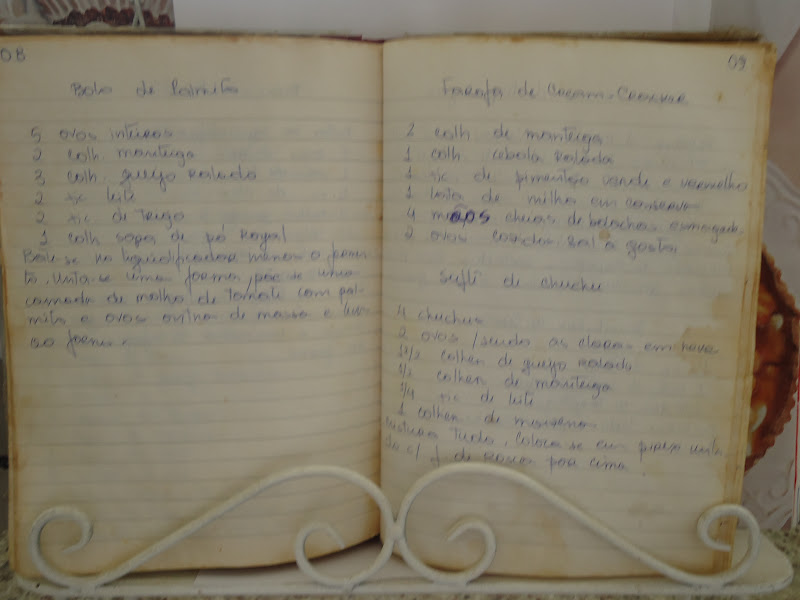 08
Bolo de Palmito
5 ovos inteiros
2 colh. manteiga
3 colh. queijo ralado
2 xic leite
2 xic. de trigo
1 colh sopa de pó Royal
Bate-se no liquidificador menos o fermen-
to. Unta-se uma forma, põe-se uma
camada de molho de tomate com pal-
mito e ovos de massa e leva
ao forno.
09
Farofa de Cream-Cracker
2 colh de manteiga
1 colh cebola ralada
1 xic. de pimentão verde e vermelho
1 lata de milho em conserva
4 mãos cheias de bolachas esmagada
2 ovos cozidos. Sal a gosto
Suflê de chuchu
4 chuchus
2 ovos /sendo as claras em neve
1 1/2 colher de queijo ralado
1/2 colher de manteiga
1/4 xic de leite
1 colher de maisena
Mistura tudo. Coloca-se em pirex unta
do c/ f. de rosca por cima